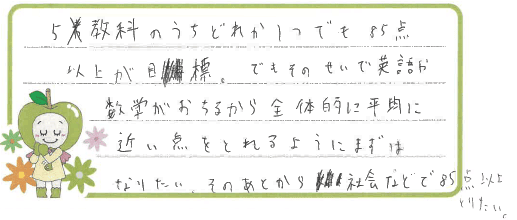 5教科のうちどれか1つでも85点
以上が目標。でもそのせいで英語か
数学がおちるから全体的に平均に
近い点をとれるようにまずは
なりたい。そのあとから社会などで85点以上
とりたい。